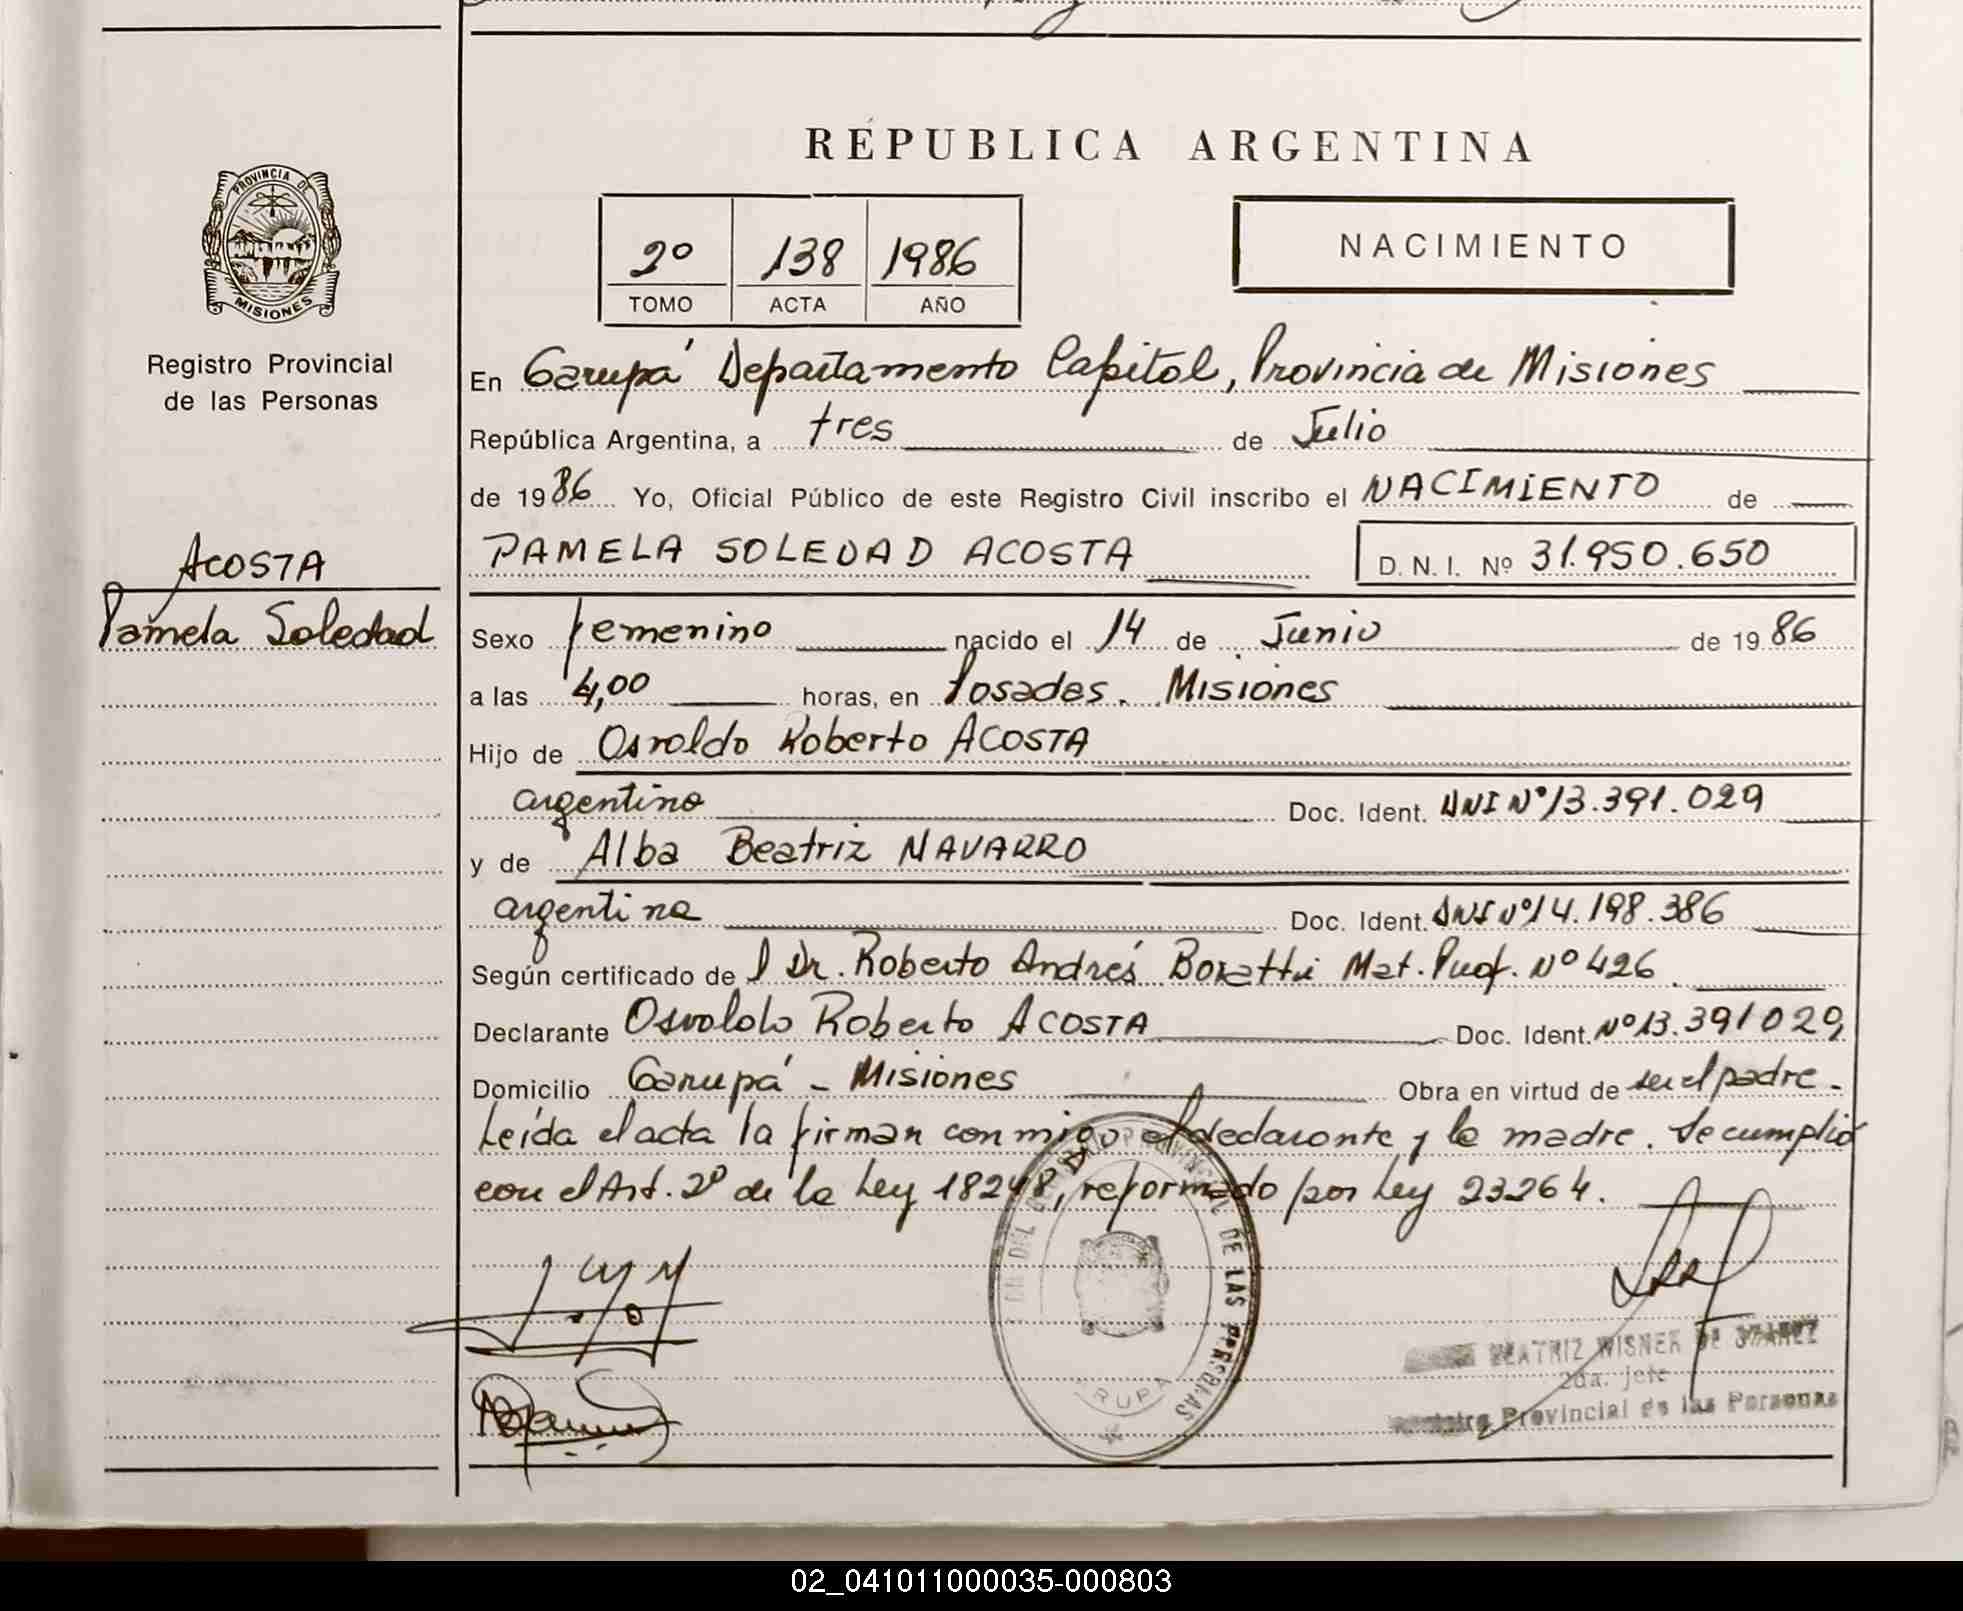 REPUBLICA ARGENTINA
PROVINCIA DE
MISIONES
Registro Provincial
de las Personas
2º 138 1986
TOMO ACTA AÑO
NACIMIENTO
En Garupá Departamento Capital, Provincia de Misiones
República Argentina, a tres de Julio
de 1986 Yo, Oficial Público de este Registro Civil inscribo el NACIMIENTO de
ACOSTA
Pamela Soledad
PAMELA SOLEDAD ACOSTA D. N. I. Nº 31.950.650
Sexo femenino nacido el 14 de Junio de 1986
a las 4,00 horas, en Posadas. Misiones
Hijo de Osvaldo Roberto ACOSTA
argentino Doc. Ident. DNI Nº 13.391.029
y de Alba Beatriz NAVARRO
argentina Doc. Ident. DNI Nº 14.198.386
Según certificado de l Dr. Roberto Andrés Mat. Prof. Nº 426
Declarante Osvaldo Roberto ACOSTA Doc. Ident. Nº 13.391029
Domicilio Garupá - Misiones Obra en virtud de ser el padre.
Leída el acta la firman conmigo el declarante y la madre. Se cumplió
con el Art. 2º de la Ley 18248, reformado por Ley 23264.
DE LAS PERSONAS
BEATRIZ WISNER DE
2da. jefe
Registro Provincial de las Personas
02_041011000035-000803